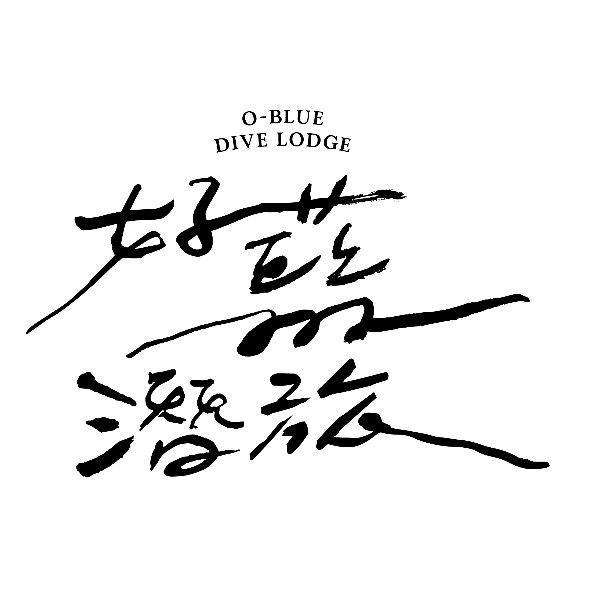 O-BLUE
DIVE LODGE
好藍
潛旅